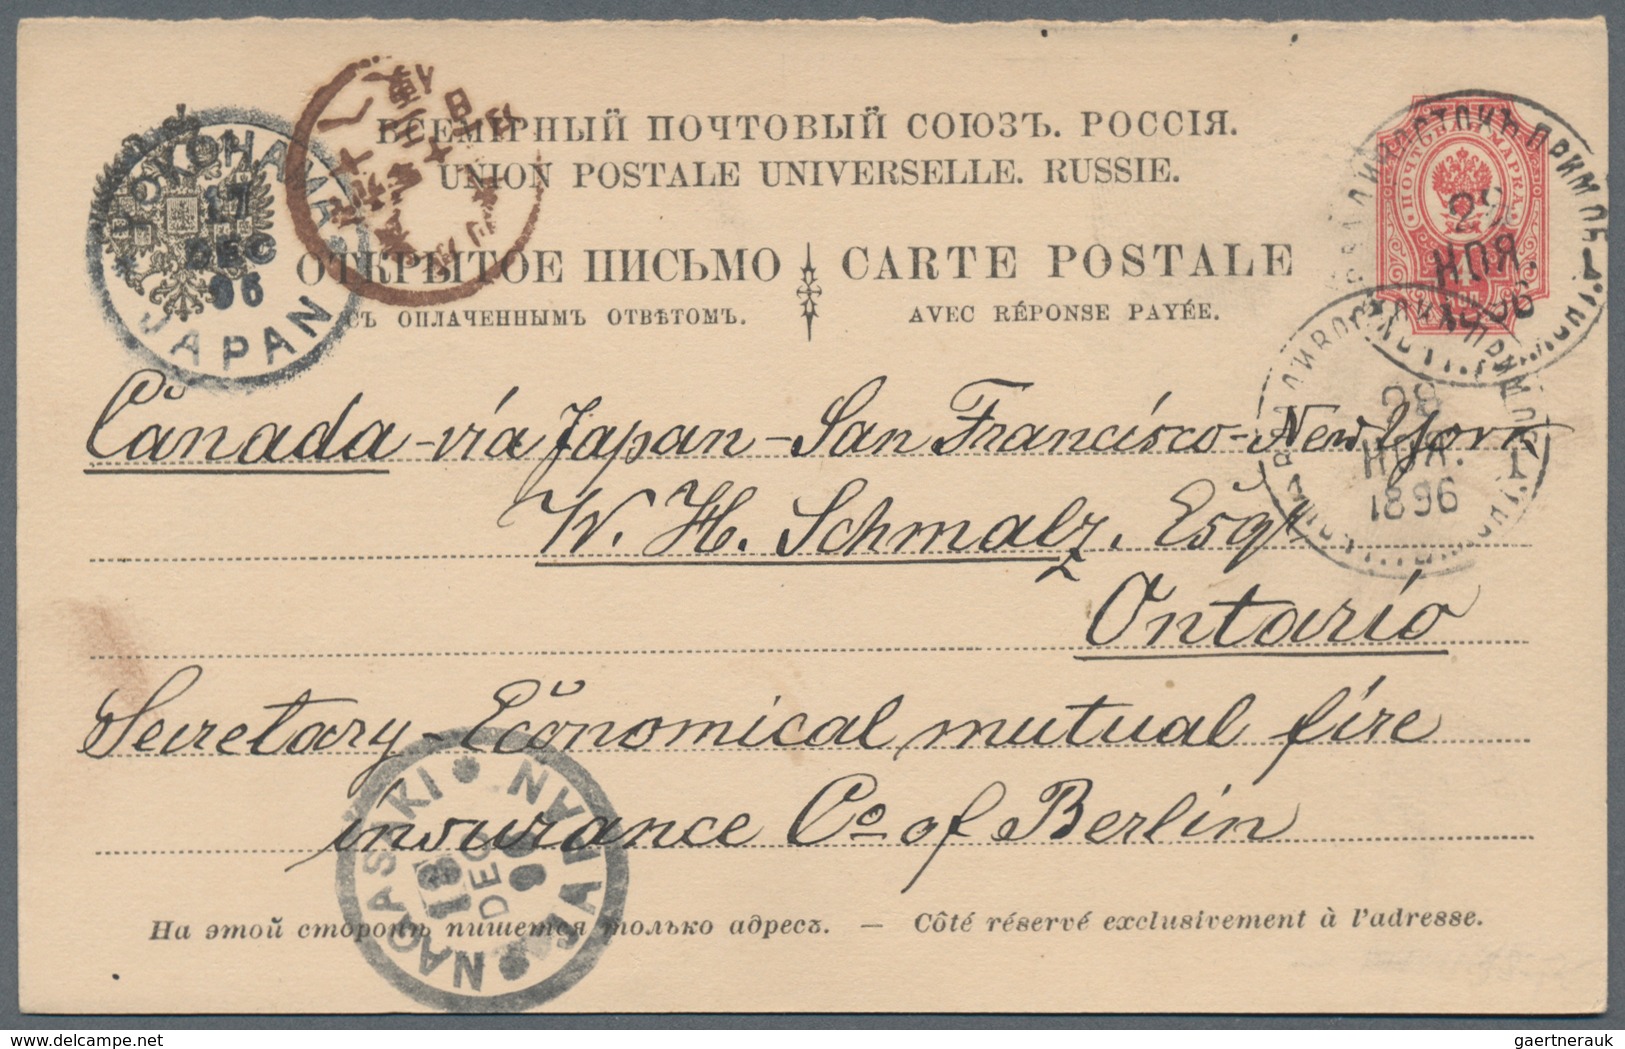 ВСЕМІРНЫЙ ПОЧТОВЫЙ СОЮЗЪ. РОССІЯ.
UNION POSTALE UNIVERSELLE. RUSSIE.
ОТКРЫТОЕ ПИСЬМО
СЪ ОПЛАЧЕННЫМЪ ОТВѢТОМЪ.
CARTE POSTALE
AVEC RÉPONSE PAYÉE.
YOKOHAMA
17
DEC
96
JAPAN
ПОЧТОВАЯ МАРКА
29
НОЯ.
1896
28
НОЯ.
1896
Canada - via Japan - San Francisco - New York
W. H. Schmalz, Esqr
Ontario
Secretary - Economical mutual fire
insurance Co of Berlin
NAGASAKI
13
DEC
96
JAPAN
На этой сторонѣ пишется только адресъ. — Côté réservé exclusivement à l'adresse.
postbeeld.com
gaertnerauk